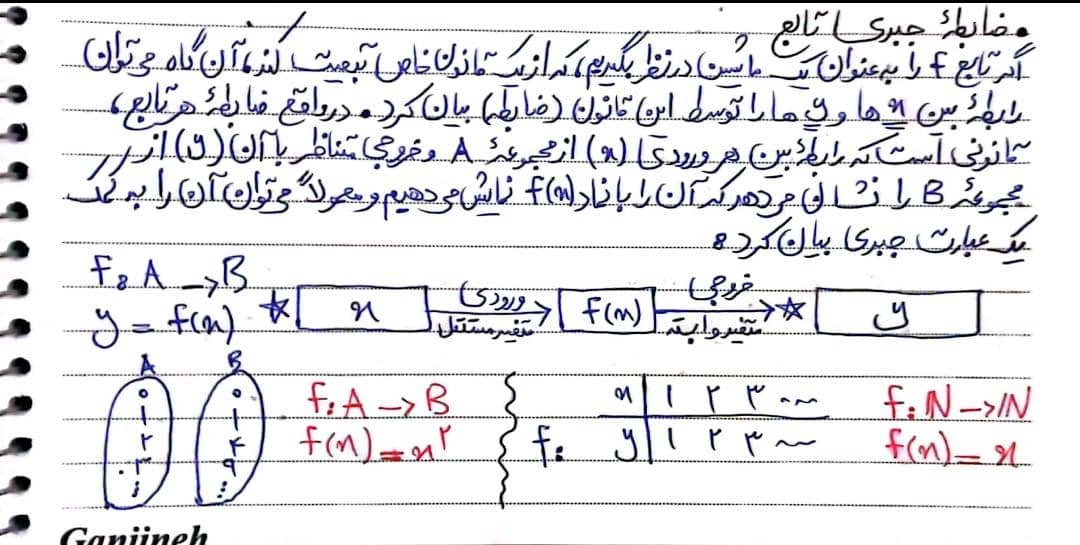 • ضابطهٔ جبری تابع
اگر تابع f را به عنوان یک ماشین در نظر بگیریم، که از یک قانون خاص تبعیت کند، آن گاه می‌توان
رابطهٔ بین x ها و y ها را توسط این قانون (ضابطه) بیان کرد. در واقع ضابطهٔ هر تابع،
قانونی است که رابطهٔ بین هر ورودی (x) از مجموعهٔ A و خروجی متناظر با آن (y) از
مجموعهٔ B را نشان می‌دهد که آن را با نماد f(x) نمایش می‌دهیم و معمولاً می‌توان آن را به کمک
یک عبارت جبری بیان کرد:
f: A → B
y = f(x) ☆ x ورودی متغیر مستقل → f(x) خروجی متغیر وابسته → ☆ y
A B
۰ ۰
۱ ۱
۲ ۴
۳ ۹
⋮ ⋮
f: A → B
f(x) = x²
f:
x | ۱ ۲ ۳ ...
y | ۱ ۲ ۳ ...
f: ℕ → ℕ
f(x) = x
Ganjineh